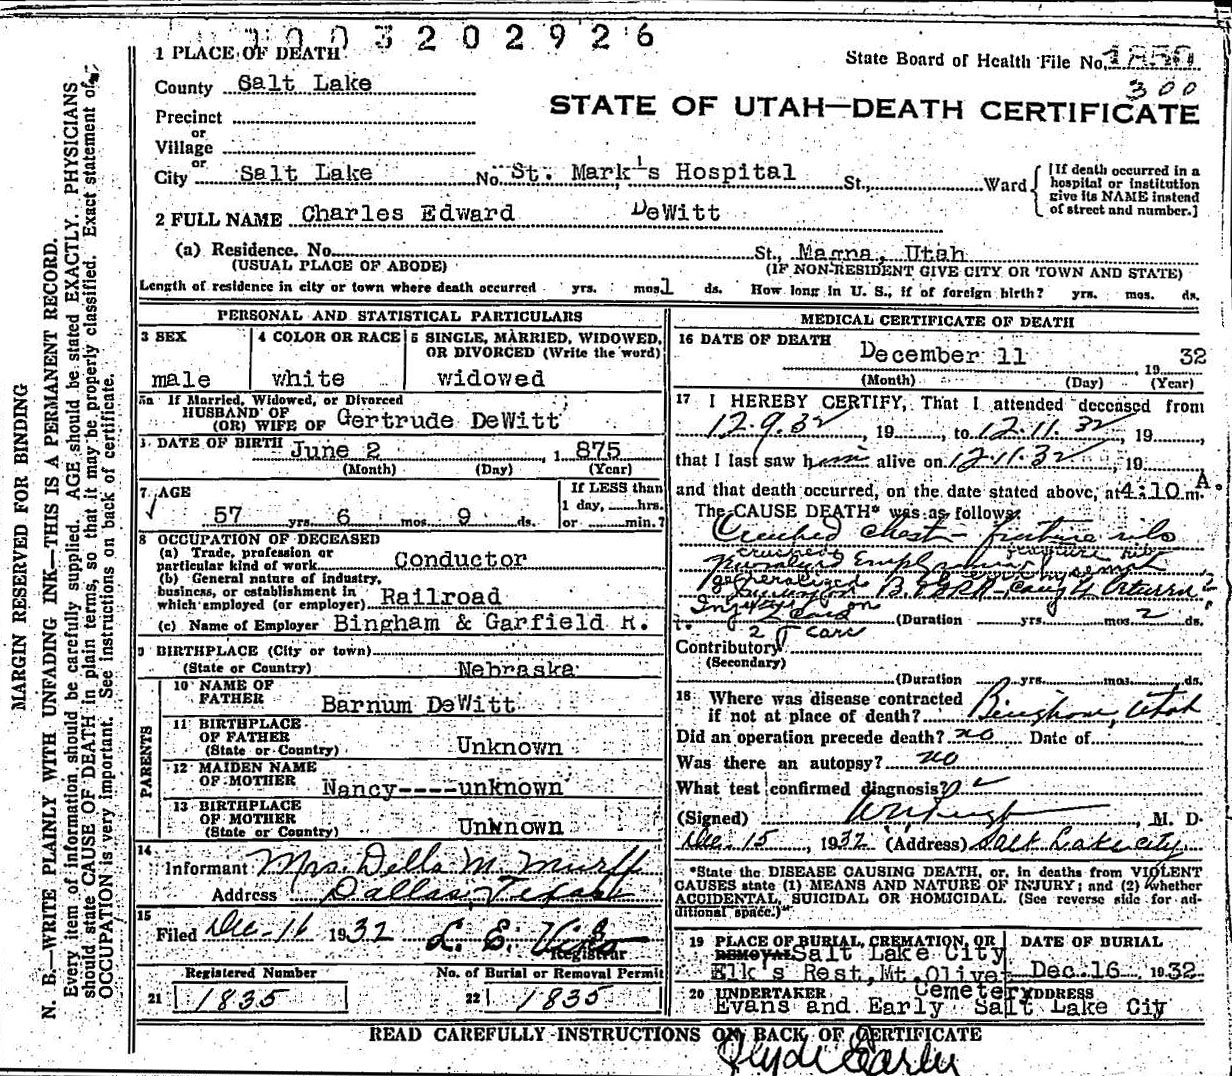 1003202926
1 PLACE OF DEATH
State Board of Health File No. 1850
300
County Salt Lake
STATE OF UTAH—DEATH CERTIFICATE
Precinct
or
Village
or
City Salt Lake No. St. Mark's Hospital St., Ward
[If death occurred in a hospital or institution give its NAME instead of street and number.]
2 FULL NAME Charles Edward DeWitt
(a) Residence. No. St., Magna, Utah
(USUAL PLACE OF ABODE) (IF NON-RESIDENT GIVE CITY OR TOWN AND STATE)
Length of residence in city or town where death occurred yrs. mos. 1 ds. How long in U. S., if of foreign birth? yrs. mos. ds.
PERSONAL AND STATISTICAL PARTICULARS
3 SEX
male
4 COLOR OR RACE
white
5 SINGLE, MARRIED, WIDOWED, OR DIVORCED (Write the word)
widowed
5a If Married, Widowed, or Divorced
HUSBAND OF
(OR) WIFE OF Gertrude DeWitt
DATE OF BIRTH June 2, 1875
(Month) (Day) (Year)
7 AGE
57 yrs. 6 mos. 9 ds.
If LESS than
1 day, hrs.
or min.?
8 OCCUPATION OF DECEASED
(a) Trade, profession or
particular kind of work Conductor
(b) General nature of industry,
business, or establishment in
which employed (or employer) Railroad
(c) Name of Employer Bingham & Garfield R.
9 BIRTHPLACE (City or town)
(State or Country) Nebraska
PARENTS
10 NAME OF
FATHER Barnum DeWitt
11 BIRTHPLACE
OF FATHER
(State or Country) Unknown
12 MAIDEN NAME
OF MOTHER Nancy----unknown
13 BIRTHPLACE
OF MOTHER
(State or Country) Unknown
14
Informant Mrs. Della M. Murff
Address Dallas, Texas
15
Filed Dec-16 1932 L. E.
Registrar
Registered Number
21 1835
No. of Burial or Removal Permit
22 1835
MEDICAL CERTIFICATE OF DEATH
16 DATE OF DEATH
December 11 1932
(Month) (Day) (Year)
17 I HEREBY CERTIFY, That I attended deceased from
12.9.32, 19, to 12.11.32, 19,
that I last saw him alive on 12.11.32, 19
and that death occurred, on the date stated above, at 4:10 A.m.
The CAUSE DEATH* was as follows:
Crushed chest - fracture ribs
crushed fracture ribs
generalized
(Duration yrs. mos. 2 ds.
2 cars
Contributory
(Secondary)
(Duration yrs. mos. ds.
18 Where was disease contracted
if not at place of death? Bingham, Utah
Did an operation precede death? no Date of
Was there an autopsy? no
What test confirmed diagnosis?
(Signed) , M. D.
Dec. 15, 1932 (Address) Salt Lake City
*State the DISEASE CAUSING DEATH, or, in deaths from VIOLENT
CAUSES state (1) MEANS AND NATURE OF INJURY; and (2) whether
ACCIDENTAL, SUICIDAL OR HOMICIDAL. (See reverse side for ad-
ditional space.)
19 PLACE OF BURIAL, CREMATION, OR
REMOVAL Salt Lake City
Elk's Rest, Mt. Olivet
Cemetery
DATE OF BURIAL
Dec. 16 1932
20 UNDERTAKER ADDRESS
Evans and Early Salt Lake Ciy
READ CAREFULLY INSTRUCTIONS ON BACK OF CERTIFICATE
Clyde Early
MARGIN RESERVED FOR BINDING
N. B.—WRITE PLAINLY WITH UNFADING INK—THIS IS A PERMANENT RECORD.
Every item of information should be carefully supplied. AGE should be stated EXACTLY. PHYSICIANS
should state CAUSE OF DEATH in plain terms, so that it may be properly classified. Exact statement of
OCCUPATION is very important. See instructions on back of certificate.